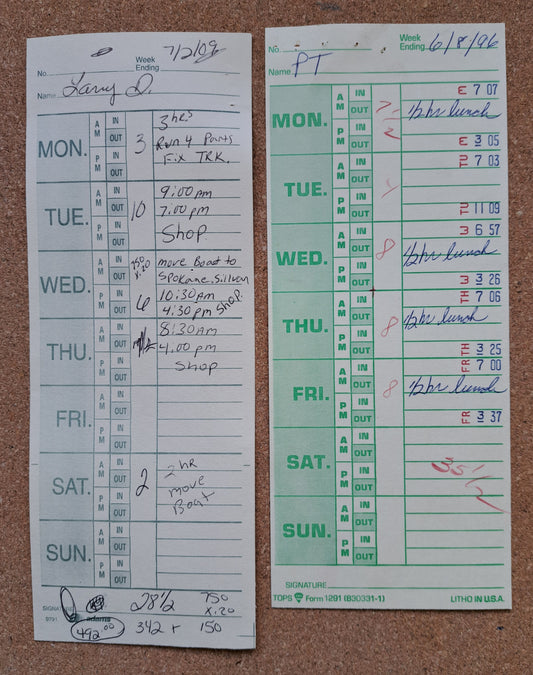 Week
Ending 7/2/09
No.
Name Larry D.
MON.
A M
IN
OUT
P M
IN
OUT
3
3 hrs
Run 4 Parts
Fix TRK.
TUE.
A M
IN
OUT
P M
IN
OUT
10
9:00 pm
7:00 pm
Shop
WED.
A M
IN
OUT
P M
IN
OUT
750
x.20
6
move Boat to
Spokane, Sullivan
10:30 pm
4:30 pm Shop.
THU.
A M
IN
OUT
P M
IN
OUT
8:30 AM
4:00 pm
Shop
FRI.
A M
IN
OUT
P M
IN
OUT
SAT.
A M
IN
OUT
P M
IN
OUT
2
2 hr
move
Boat
SUN.
A M
IN
OUT
P M
IN
OUT
SIGNATURE
28 1/2
750
x.20
9791
adams
492.00
342 +
150
Week
Ending 6/8/96
No.
Name PT
MON.
A M
IN
OUT
P M
IN
OUT
7 1/2
E 7 07
1/2 hr lunch
E 3 05
TUE.
A M
IN
OUT
P M
IN
OUT
4
TU 7 03
TU 11 09
WED.
A M
IN
OUT
P M
IN
OUT
8
3 6 57
1/2 hr lunch
3 3 26
THU.
A M
IN
OUT
P M
IN
OUT
8
TH 7 06
1/2 hr lunch
TH 3 25
FRI.
A M
IN
OUT
P M
IN
OUT
8
FR 7 00
1/2 hr lunch
FR 3 37
SAT.
A M
IN
OUT
P M
IN
OUT
35 1/2
SUN.
A M
IN
OUT
P M
IN
OUT
SIGNATURE
TOPS Form 1291 (830331-1)
LITHO IN U.S.A.